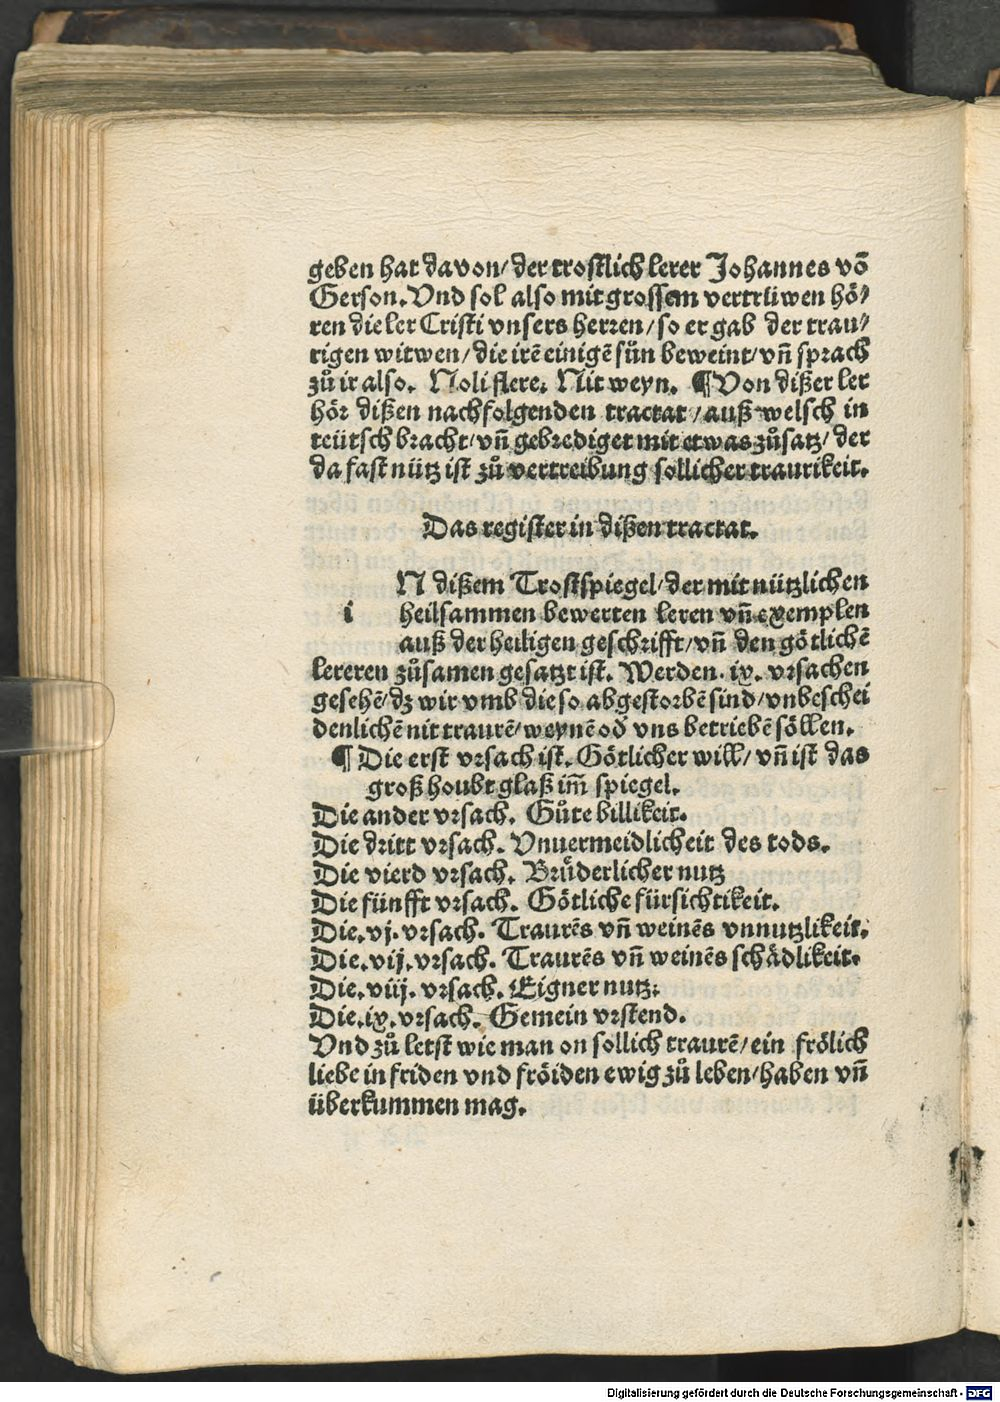 geben hat davon/ der trostlich lerer Johannes võ
Gerson. Vnd sol also mit grossem vertrüwen hö⸗
ren die ler Cristi vnsers herren/ so er gab der trau⸗
rigen witwen/ die irē einigē sůn beweint/ vñ sprach
zů ir also. Noli flere. Nit weyn. ¶ Von dißer ler
hör dißen nachfolgenden tractat/ auß welsch in
teütsch bracht/ vñ gebrediget mit etwas zůsatz/ der
da fast nütz ist zů vertreibung sollicher traurikeit.
Das register in dißen tractat.
i N dißem Trostspiegel/ der mit nützlichen
heilsammen bewerten leren vñ exemplen
auß der heiligen geschrifft/ vñ den götlichē
lereren zůsamen gesatzt ist. Werden. ix. vrsachen
gesehē/ dz wir vmb die so abgestorbē sind/ vnbeschei
denlichē nit traurē/ weynē od̓ vns betriebē söllen.
¶ Die erst vrsach ist. Götlicher will/ vñ ist das
groß houbt glaß im̄ spiegel.
Die ander vrsach. Gůte billikeit.
Die dritt vrsach. Vnuermeidlicheit des tods.
Die vierd vrsach. Brůderlicher nutz
Die fünfft vrsach. Götliche fürsichtikeit.
Die. vj. vrsach. Traurēs vñ weinēs vnnutzlikeit.
Die. vij. vrsach. Traurēs vñ weinēs schädlikeit.
Die. viij. vrsach. Eigner nutz.
Die. ix. vrsach. Gemein vrstend.
Vnd zů letst wie man on sollich traurē/ ein frölich
liebe in friden vnd fröiden ewig zů leben/ haben vñ
überkummen mag.
Digitalisierung gefördert durch die Deutsche Forschungsgemeinschaft - DFG